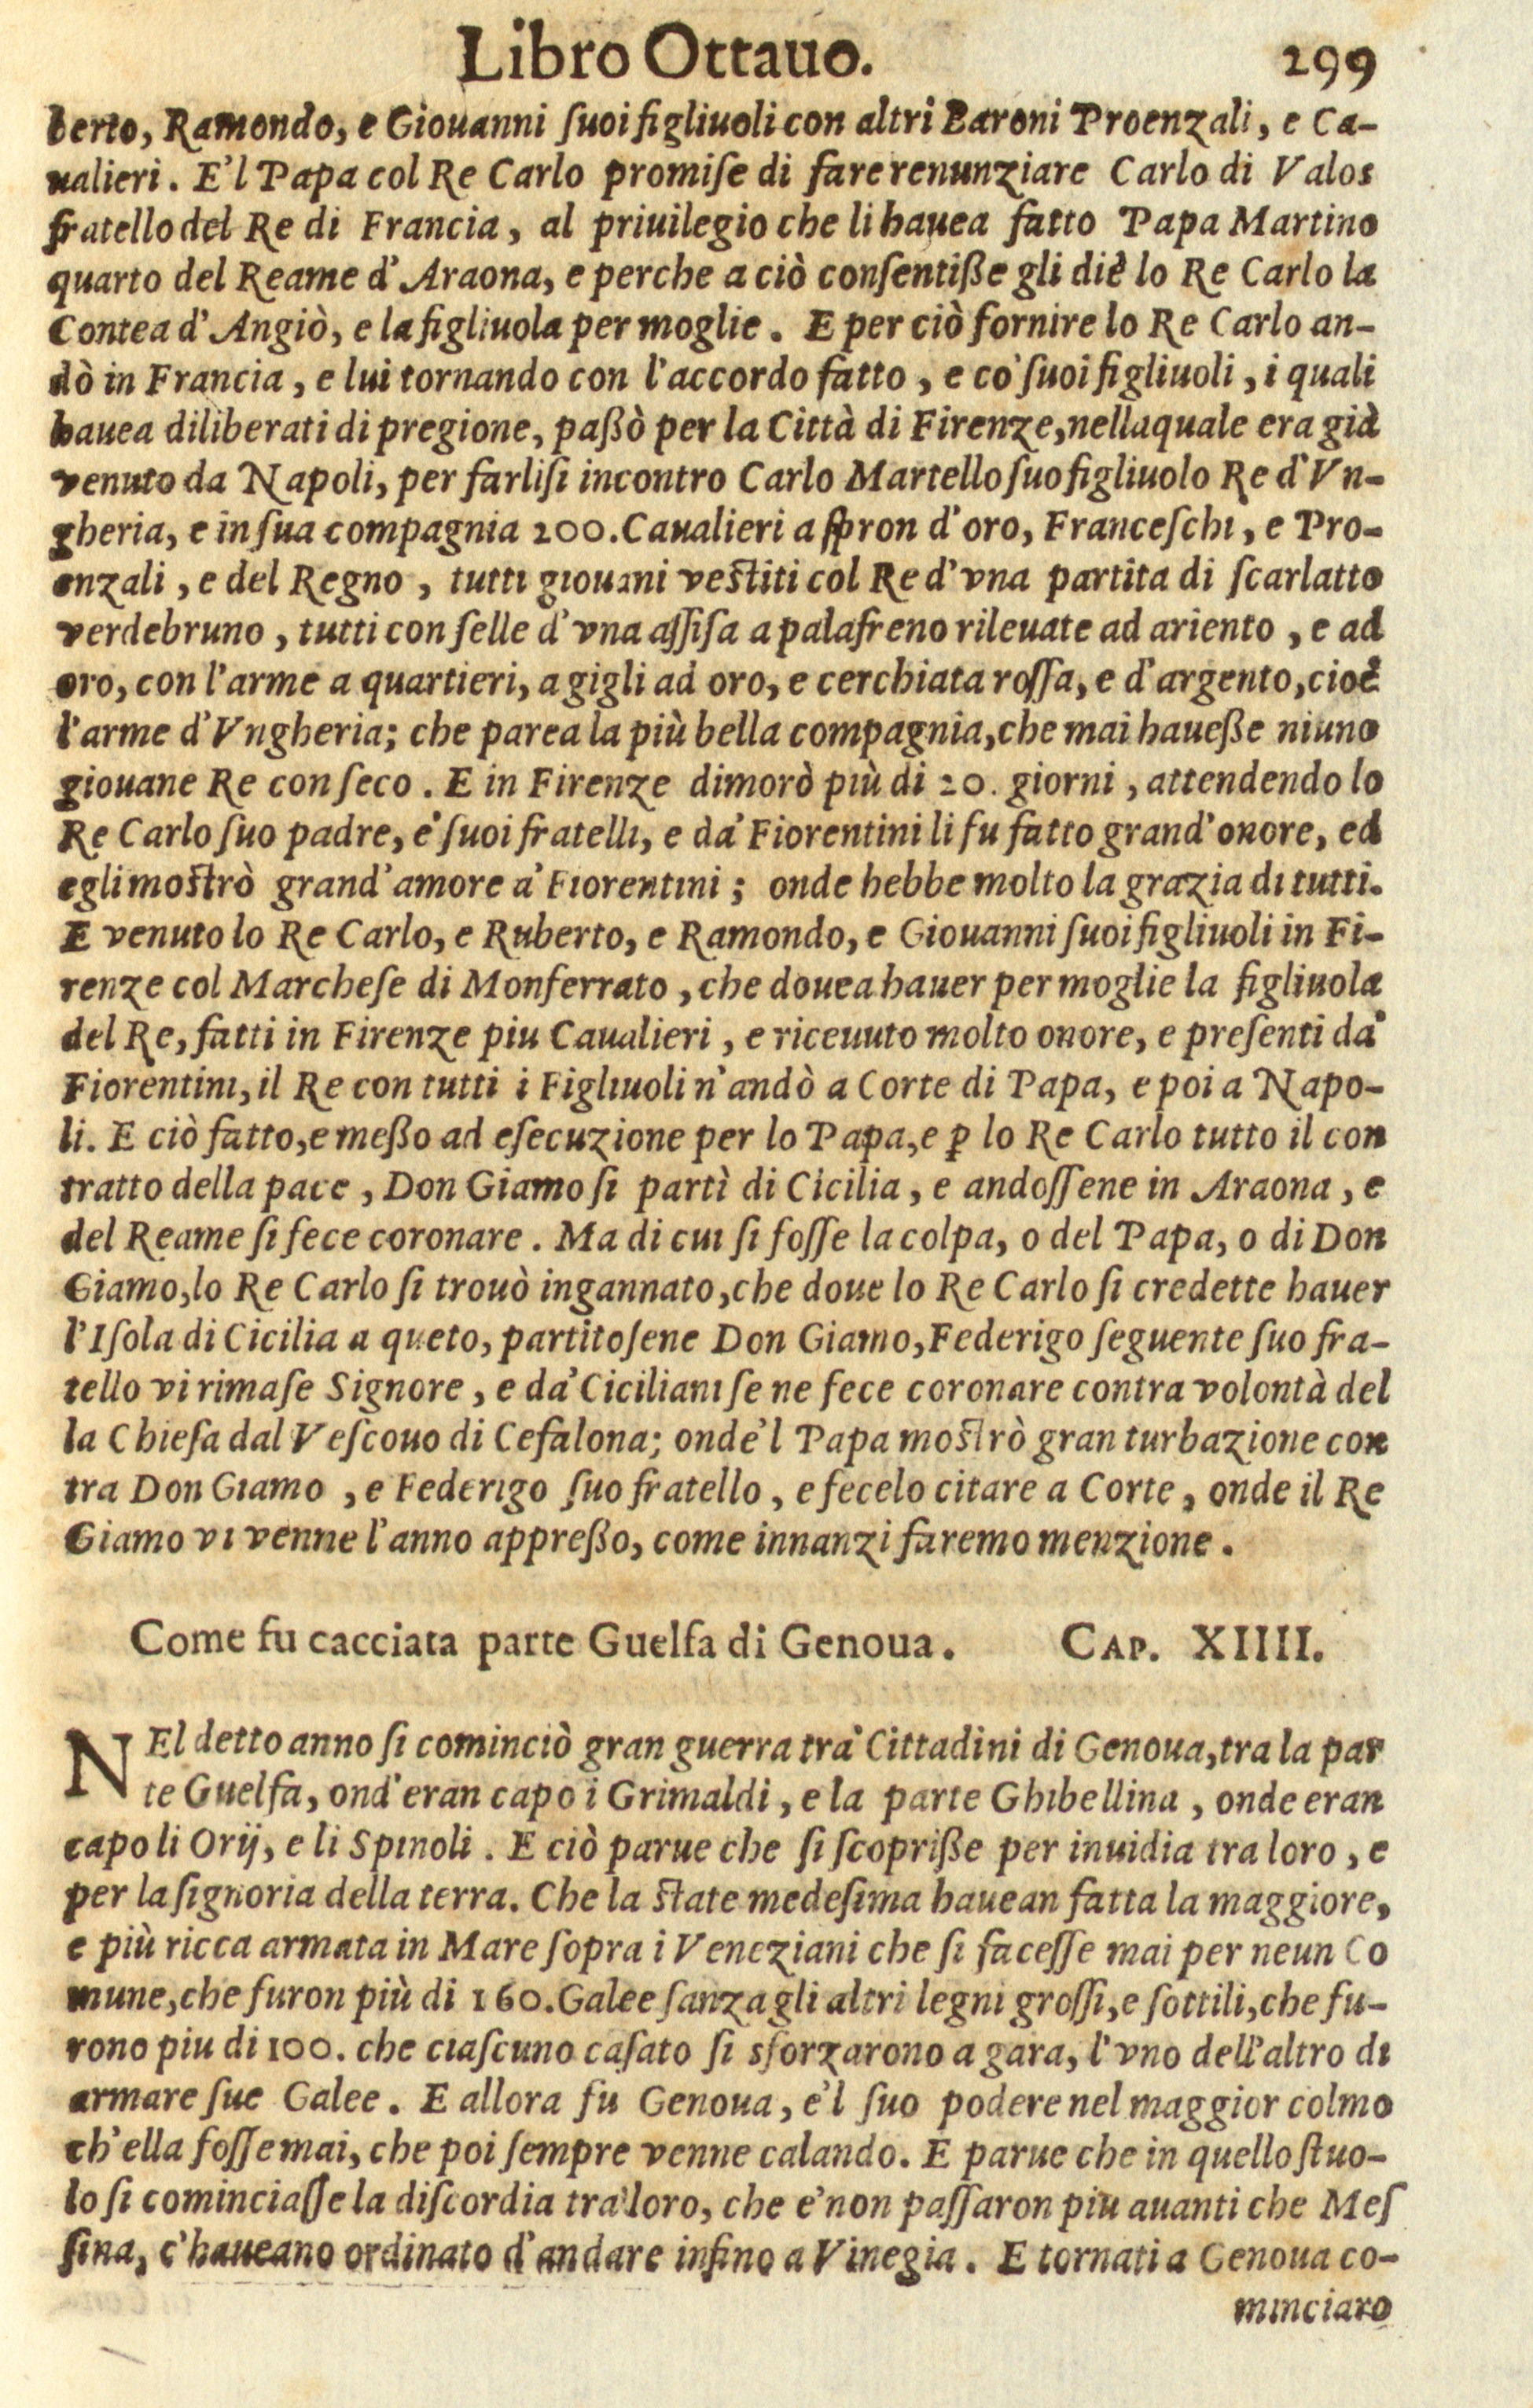 Libro Ottauo. 299
berto, Ramondo, e Giouanni ſuoi figliuoli con altri Baroni Proenzali, e Ca-
ualieri. E'l Papa col Re Carlo promiſe di fare renunziare Carlo di Valos
fratello del Re di Francia, al priuilegio che li hauea fatto Papa Martino
quarto del Reame d'Araona, e perche a ciò conſentiße gli diè lo Re Carlo la
Contea d'Angiò, e la figliuola per moglie. E per ciò fornire lo Re Carlo an-
dò in Francia, e lui tornando con l'accordo fatto, e co' ſuoi figliuoli, i quali
hauea diliberati di pregione, paßò per la Città di Firenze, nellaquale era già
venuto da Napoli, per farliſi incontro Carlo Martello ſuo figliuolo Re d'Vn-
gheria, e in ſua compagnia 200. Caualieri a ſpron d'oro, Franceſchi, e Pro-
enzali, e del Regno, tutti giouani veſtiti col Re d'vna partita di ſcarlatto
verdebruno, tutti con ſelle d'vna aſſiſa a palafreno rileuate ad ariento, e ad
oro, con l'arme a quartieri, a gigli ad oro, e cerchiata roſſa, e d'argento, cioè
l'arme d'Vngheria; che parea la più bella compagnia, che mai haueße niuno
giouane Re con ſeco. E in Firenze dimorò più di 20. giorni, attendendo lo
Re Carlo ſuo padre, e' ſuoi fratelli, e da' Fiorentini li fu fatto grand'onore, ed
egli moſtrò grand'amore a' Fiorentini; onde hebbe molto la grazia di tutti.
E venuto lo Re Carlo, e Ruberto, e Ramondo, e Giouanni ſuoi figliuoli in Fi-
renze col Marcheſe di Monferrato, che douea hauer per moglie la figliuola
del Re, fatti in Firenze piu Caualieri, e riceuuto molto onore, e preſenti da'
Fiorentini, il Re con tutti i Figliuoli n'andò a Corte di Papa, e poi a Napo-
li. E ciò fatto, e meßo ad eſecuzione per lo Papa, e ꝑ lo Re Carlo tutto il con
tratto della pace, Don Giamo ſi partì di Cicilia, e andoſſene in Araona, e
del Reame ſi fece coronare. Ma di cui ſi foſſe la colpa, o del Papa, o di Don
Giamo, lo Re Carlo ſi trouò ingannato, che doue lo Re Carlo ſi credette hauer
l'Iſola di Cicilia a queto, partitoſene Don Giamo, Federigo ſeguente ſuo fra-
tello vi rimaſe Signore, e da' Ciciliani ſe ne fece coronare contra volontà del
la Chieſa dal Veſcouo di Cefalona; onde'l Papa moſtrò gran turbazione con
tra Don Giamo, e Federigo ſuo fratello, e fecelo citare a Corte, onde il Re
Giamo vi venne l'anno appreßo, come innanzi faremo menzione.
Come fu cacciata parte Guelfa di Genoua. CAP. XIIII.
NEl detto anno ſi cominciò gran guerra tra' Cittadini di Genoua, tra la par
te Guelfa, ond'eran capo i Grimaldi, e la parte Ghibellina, onde eran
capo li Orij, e li Spinoli. E ciò parue che ſi ſcopriße per inuidia tra loro, e
per la ſignoria della terra. Che la ſtate medeſima hauean fatta la maggiore,
e più ricca armata in Mare ſopra i Veneziani che ſi faceſſe mai per neun Co
mune, che furon più di 160. Galee ſanza gli altri legni groſſi, e ſottili, che fu-
rono piu di 100. che ciaſcuno caſato ſi sforzarono a gara, l'vno dell'altro di
armare ſue Galee. E allora fu Genoua, e'l ſuo podere nel maggior colmo
ch'ella foſſe mai, che poi ſempre venne calando. E parue che in quello ſtuo-
lo ſi cominciaſſe la diſcordia tra' loro, che e' non paſſaron piu auanti che Meſ
ſina, c'haueano ordinato d'andare infino a Vinegia. E tornati a Genoua co-
minciaro